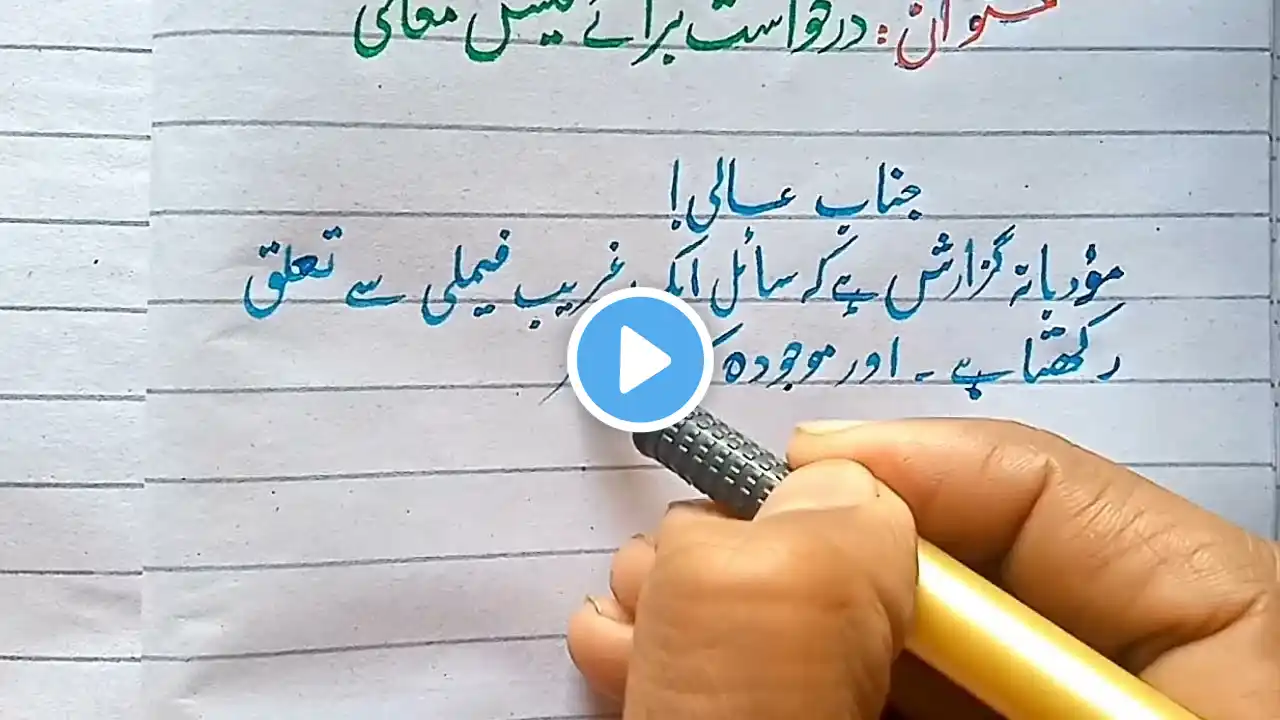 عنوان: درخواست برائے فیس معافی
جناب عالی!
مؤدبانہ گزارش ہے کہ سائل ایک غریب فیملی سے تعلق
رکھتا ہے۔ اور موجودہ